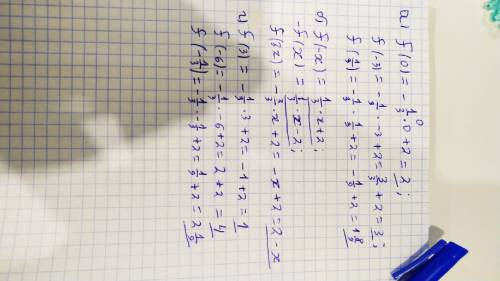 а) f(0) = -1/3 · 0 + 2 = 2;
f(-3) = -1/3 · -3 + 2 = 3/3 + 2 = 3;
f(1/3) = -1/3 · 1/3 + 2 = -1/9 + 2 = 1 8/9
б) f(-x) = 1/3 · x + 2;
-f(x) = 1/3 · x - 2;
f(3x) = -3/3 · x + 2 = -x + 2 = 2 - x
f(3) = -1/3 · 3 + 2 = -1 + 2 = 1
f(-6) = -1/3 · -6 + 2 = 2 + 2 = 4
f(-1/3) = -1/3 · -1/3 + 2 = 1/9 + 2 = 2 1/9